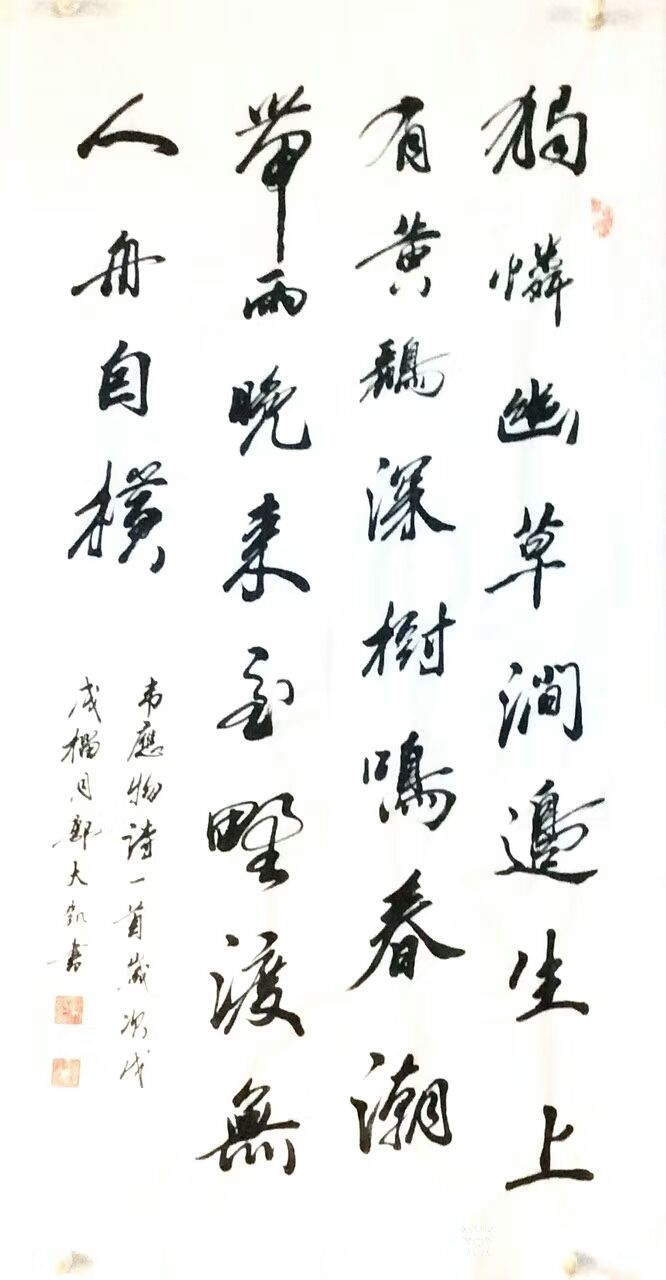 獨憐幽草澗邊生上
有黃鸝深樹鳴春潮
帶雨晚來急野渡無
人舟自橫
韋應物詩一首歲次戊
戌榴月鄭大凱書